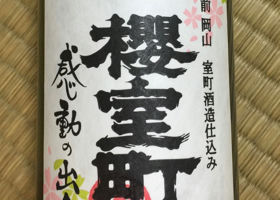 前岡山 室町酒造仕込み
櫻室町
感動の出